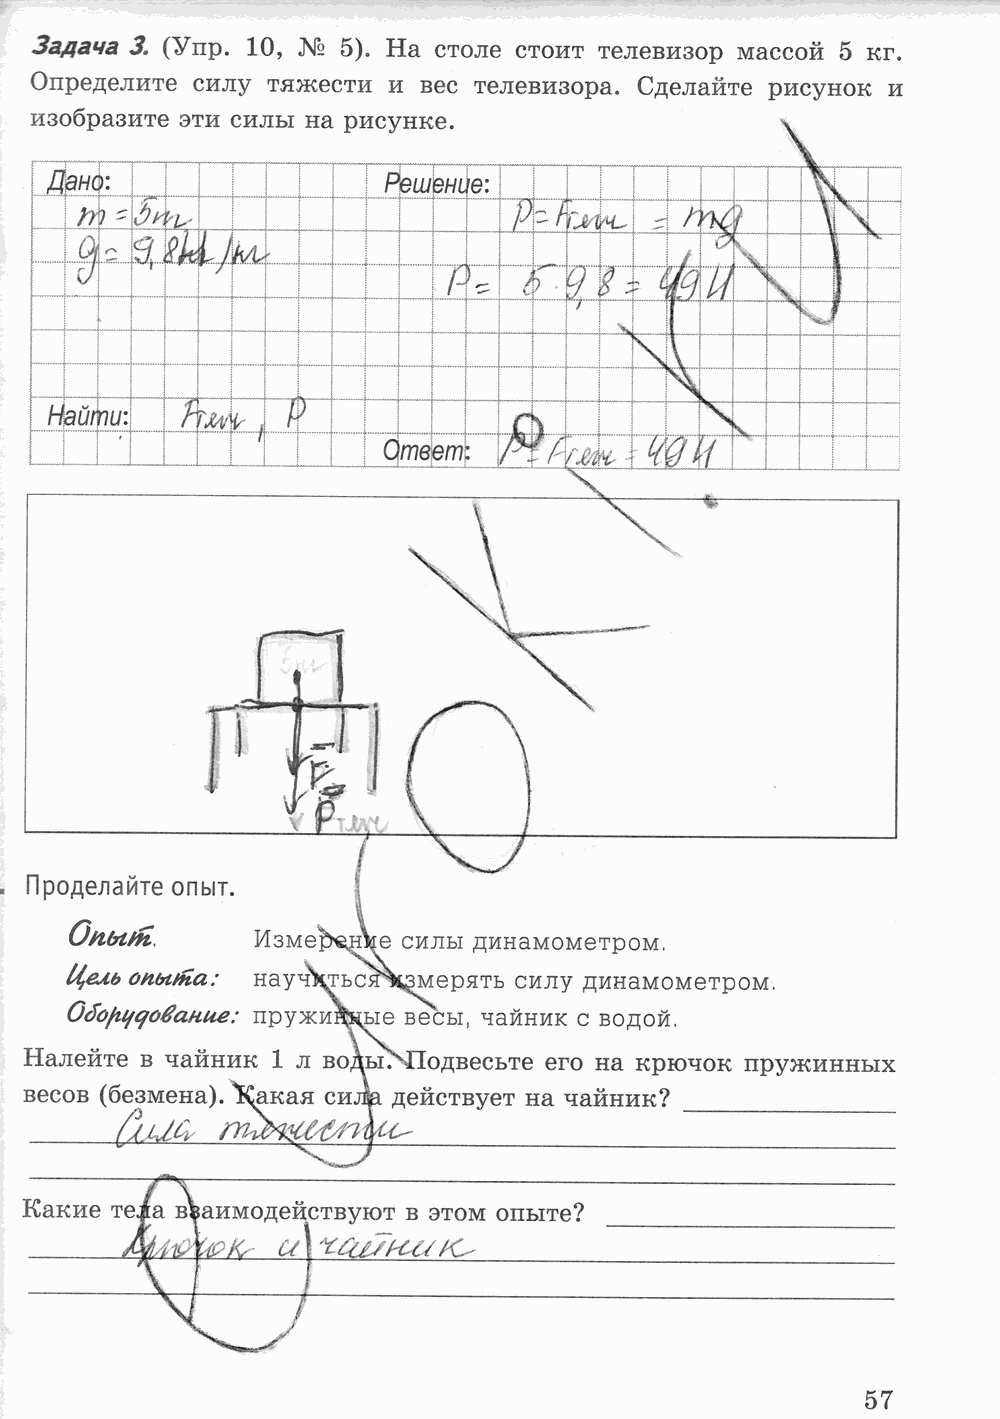 Задача 3. (Упр. 10, № 5). На столе стоит телевизор массой 5 кг.
Определите силу тяжести и вес телевизора. Сделайте рисунок и
изобразите эти силы на рисунке.
Дано: Решение:
m = 5кг P = Fтяж = mg
g = 9,8 Н/кг
P = 5 · 9,8 = 49 Н
Найти: Fтяж, P
Ответ: P = Fтяж = 49 Н
5кг
F
P тяж
Проделайте опыт.
Опыт. Измерение силы динамометром.
Цель опыта: научиться измерять силу динамометром.
Оборудование: пружинные весы, чайник с водой.
Налейте в чайник 1 л воды. Подвесьте его на крючок пружинных
весов (безмена). Какая сила действует на чайник?
Сила тяжести
Какие тела взаимодействуют в этом опыте?
Крючок и чайник
57